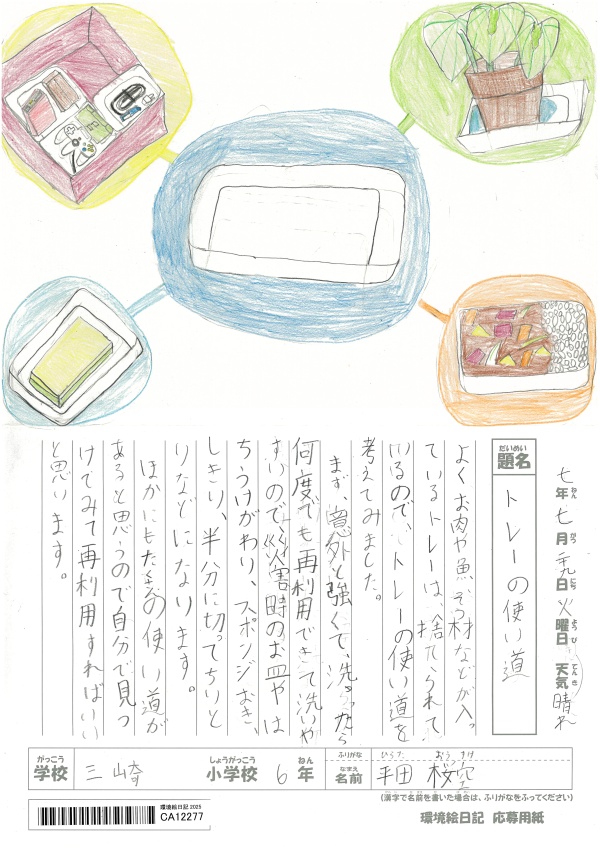 七年七月二九日火曜日 天気晴れ
ねん がつ にち ようび てんき
だいめい
題名
トレーの使い道
よくお肉や魚、ぞう材などが入っ
ているトレーは、捨てられて
いるので、トレーの使い道を
考えてみました。
まず、意外と強くて、洗ったら
何度でも再利用できて洗いや
すいので、災害時のお皿やは
ちうけがわり、スポンジおき、
しきり、半分に切ってちりと
りなどになります。
ほかにもた家の使い道が
あると思うので自分で見つ
けてみて再利用すればいい
と思います。
がっこう
学校
三崎
しょうがっこう
小学校
6
ねん
年
ふりがな
なまえ
名前
ひらた おうすけ
平田 桜空
(漢字で名前を書いた場合は、ふりがなをふってください)
環境絵日記 2025
CA12277
環境絵日記 応募用紙